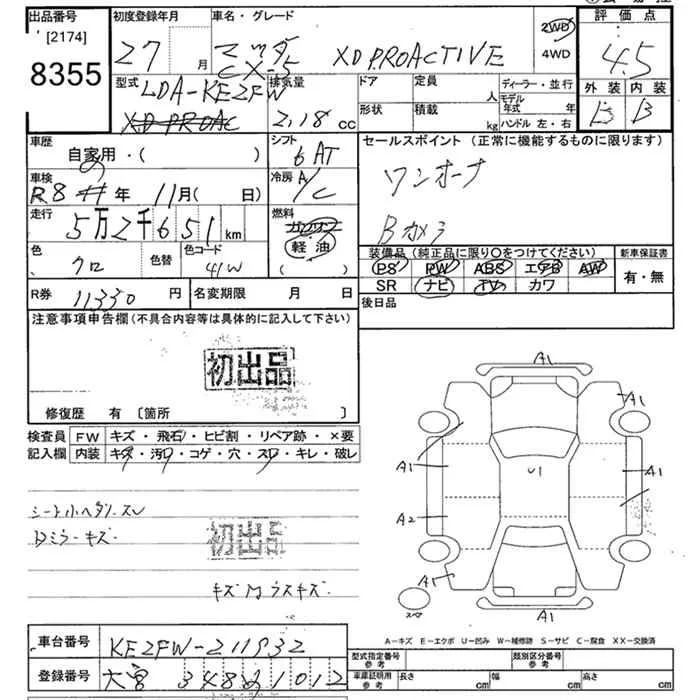 出品番号 [2174] 8355
初度登録年月 27 月
車名・グレード マツダ CX-5 XD PROACTIVE
2WD 4WD
評価点 4.5
外装 B 内装 B
型式 LDA-KE2FW
XD PROAC
排気量 2.18 cc
ドア 定員 人
形状 積載 kg
ディーラー・並行
モデル年式 年
ハンドル 左・右
車歴 自家用・( )
シフト 6AT
セールスポイント (正常に機能するものに限ります)
ワンオーナ
Bカメラ
車検 R8 年 11月( 日)
冷房 A/C
走行 5万2千651km
燃料 ガソリン 軽油 ( )
色 クロ 色替 色コード 41W
装備品 (純正品に限り〇をつけてください)
PS PW ABS エアB AW
SR ナビ TV カワ
新車保証書 有・無
R券 11330 円
名変期限 月 日
後日品
注意事項申告欄 (不具合内容等は具体的に記入して下さい)
初出品
修復歴 有 [箇所 ]
検査員記入欄
FW キズ・飛石・ヒビ割・リペア跡・×要
内装 キズ・汚リ・コゲ・穴・スレ・キレ・破レ
初出品
Dミラーキズ
A1
A1
A1
A1
U1
A2
A1
A1
スペ
A-キズ E-エクボ U-凹み W-補修跡 S-サビ C-腐食 XX-交換済
車台番号 KE2FW-211932
登録番号 大宮 348 1012
型式指定番号 参考
類別区分番号 参考
車庫証明用 参考 長さ cm 幅 cm 高さ cm